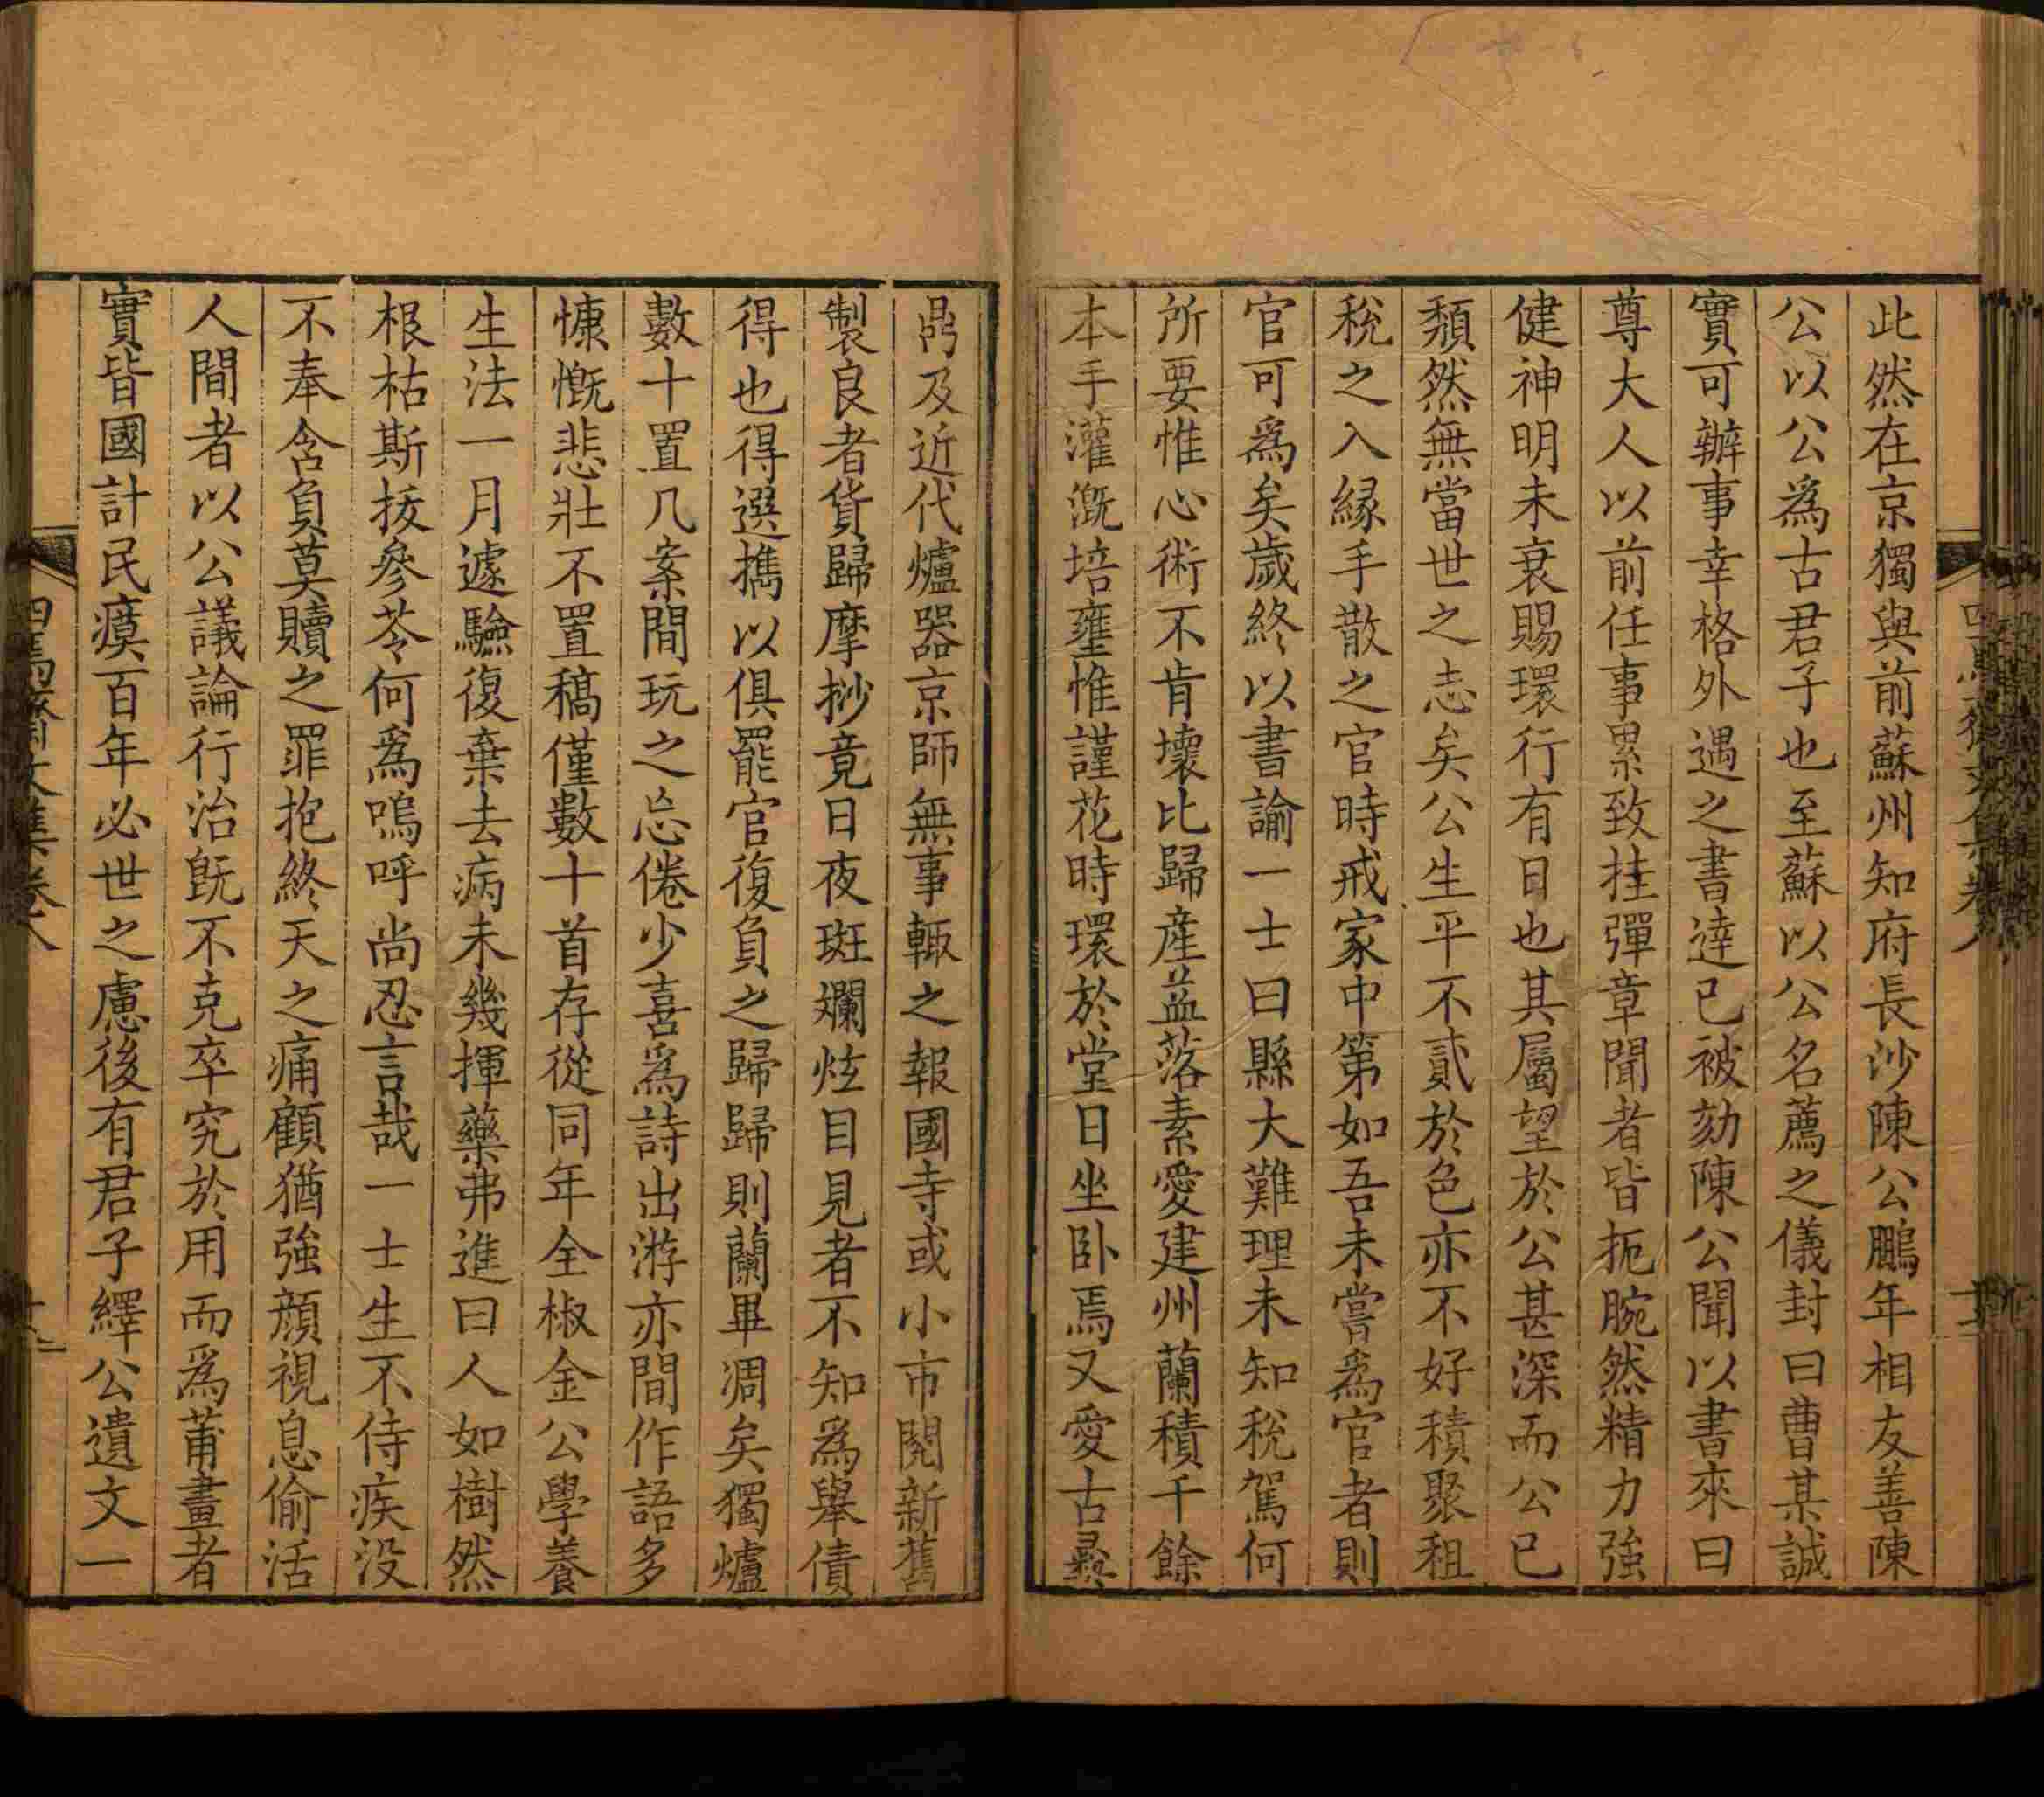 此然在京獨與前蘇州知府長沙陳公鵬年相友善陳
公以公為古君子也至蘇以公名薦之儀封曰曹某誠
實可辦事幸格外遇之書達已被劾陳公聞以書來曰
尊大人以前任事累致挂彈章聞者皆扼腕然精力強
健神明未衰賜環行有日也其屬望於公甚深而公已
頽然無當世之志矣公生平不貳於色亦不好積聚租
稅之入緣手散之官時戒家中第如吾未嘗為官者則
官可為矣歲終以書諭一士曰縣大難理未知稅駕何
所要惟心術不肯壞比歸產益落素愛建州蘭積千餘
本手灌溉培壅惟謹花時環於堂日坐卧焉又愛古彝
鼎及近代爐器京師無事輒之報國寺或小市閱新舊
製良者貨歸摩挱竟日夜斑斕炫目見者不知為舉債
得也得選攜以俱罷官復負之歸歸則蘭畢凋矣獨爐
數十置几案間玩之忘倦少喜為詩出游亦間作語多
慷慨悲壯不置稿僅數十首存從同年全椒金公學養
生法一月遽驗復棄去病未幾揮藥弗進曰人如樹然
根枯斯拔參苓何為嗚呼尚忍言哉一士生不侍疾没
不奉含負莫贖之罪抱終天之痛顧猶強顏視息偷活
人間者以公議論行治既不克卒究於用而為莆畫者
實皆國計民瘼百年必世之慮後有君子繹公遺文一
四焉齋文集卷八